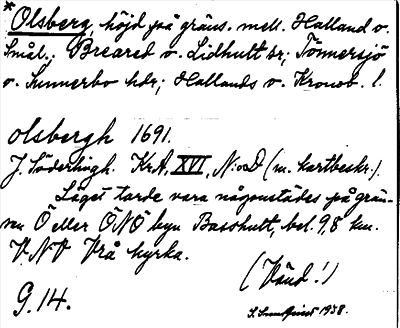 * Olsberg, höjd på gräns. mell. Halland o.
Smål.; Breared o. Lidhult sr; Tönnersjö
o. Sunnerbo hdr; Hallands o. Kronob. l.
olsbergh 1691.
J. Söderlingh. Kr.A. XVI, N:o D (m. kartbeskr.).
Läget torde vara någonstädes på grän-
sen Ö eller ÖNÖ byn Basshult, bel. 9,8 km.
V.N.V Vrå kyrka.
(Vänd!)
G. 14.
S. Sundquist 1938.